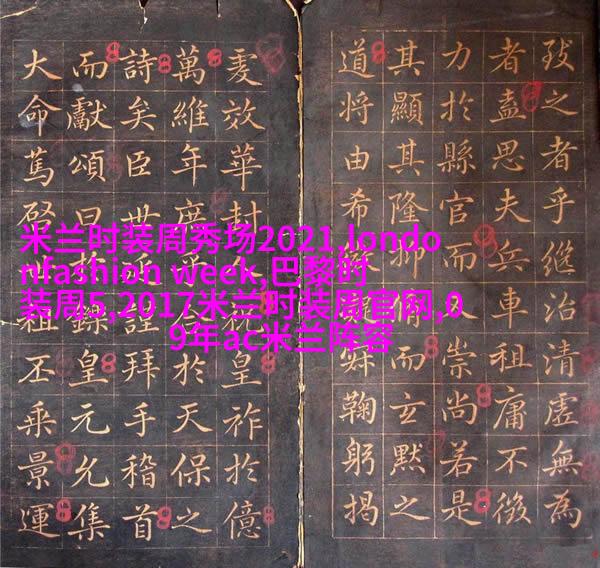 米兰时装周秀场2021,londo
nfashion week,巴黎时
装周5,2017米兰时装周官网,0
9年ac米兰阵容
之者乎治清虛無為
者盍思夫兵車租庸不徵
力於縣官崇尚若是
其顯其隆抑而玄默之
道將由希鞠躬揭
效華封祝皇祚於億
萬維年合於天保之
詩矣臣世謹拜手稽首
而獻頌曰鑠皇元允集
大命篤祖丕乘景運